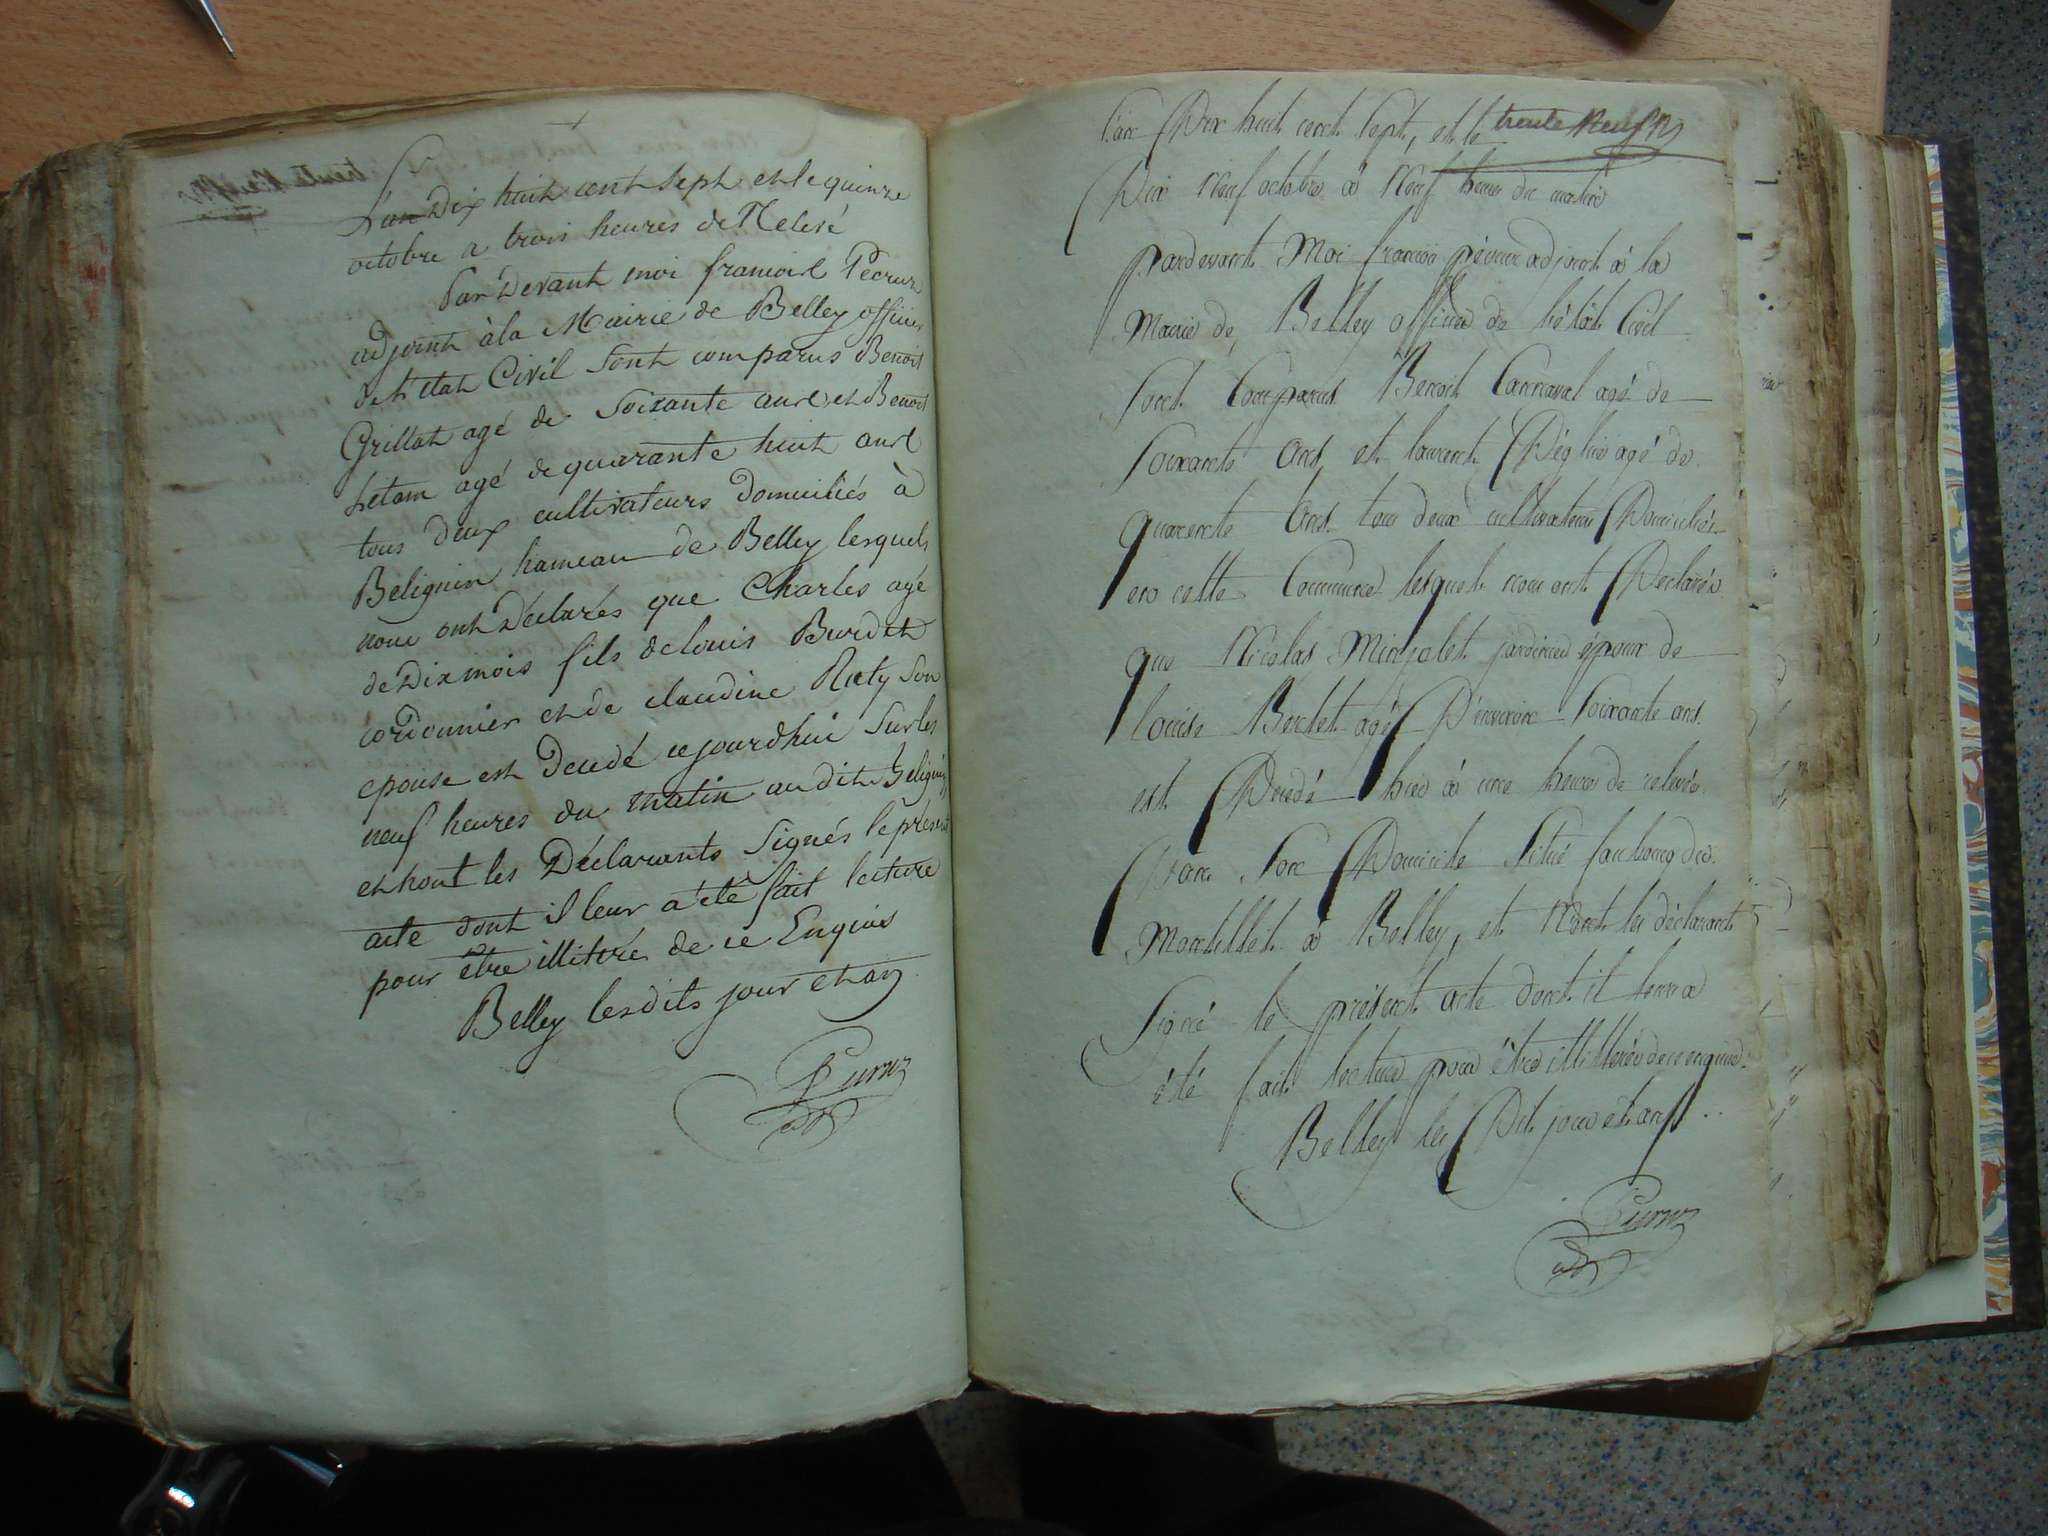 L'an Dix huit cent Sept et le quinze
octobre a trois heures de Relevé
Par Devant moi francois
adjoint à la Mairie de Belley officier
de l'Etat Civil Sont comparus Benoit
Grillat agé de Soixante ans et Benoit
agé de quarante huit ans
tous deux cultivateurs Domiciliés à
Belignin hameau de Belley lesquels
nous ont Déclarés que Charles agé
de Dix mois fils de louis Burdet
cordonnier et de claudine Rœty Son
epouse est Decedé cejourdhui Sur les
neuf heures du matin au dit Belignin
et nont les Déclarants Signés le présent
acte dont il leur a été fait lecture
pour être illitéré de ce Enquis
Belley lesdits jour et an
L'an Dix huit cent Sept, et le trente Neuf
Dix Neuf octobre à Neuf heures du matin
pardevant Moi francois adjoint à la
Mairie de Belley officier de l'état Civil
Sont Comparus Benoit Carnaval agé de
Soixante Ans, et laurent agé de
quarente Ans, tous deux cultivateurs Domiciliés
en cette Commune lesquels nous ont Déclarés
que Nicolas Minjolet jardinier époux de
louise Bertet agé D'environ Soixante ans
est Decedé hier à une heure de relevée
Dans Son Domicile Situé faubourg du
Montillet à Belley, et N'ont les déclarant
Signé le présent acte dont il leur a
été fait lecture pour être illittérés de ce enquis
Belley les Dit jour et an